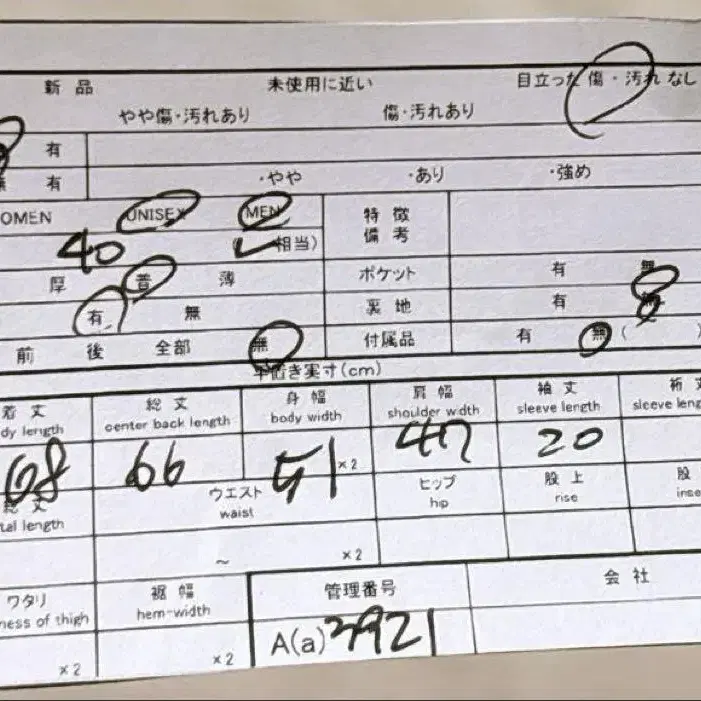 新品 未使用に近い 目立った傷・汚れなし
やや傷・汚れあり 傷・汚れあり
有
無 有 ・やや ・あり ・強め
OMEN UNISEX MEN 特徴 備考
40 (L相当)
厚 普 薄 ポケット 有 無
有 無 裏地 有 無
前 後 全部 無 付属品 有 無 ( )
平置き実寸(cm)
着丈 総丈 身幅 肩幅 袖丈 裄丈
dy length center back length body width shoulder width sleeve length sleeve leng
68 66 51 ×2 47 20
総丈 ウエスト ヒップ 股上 股
tal length waist hip rise inse
~ ×2
ワタリ 裾幅 管理番号 会社
ness of thigh hem-width
×2 ×2 A(a) 3921